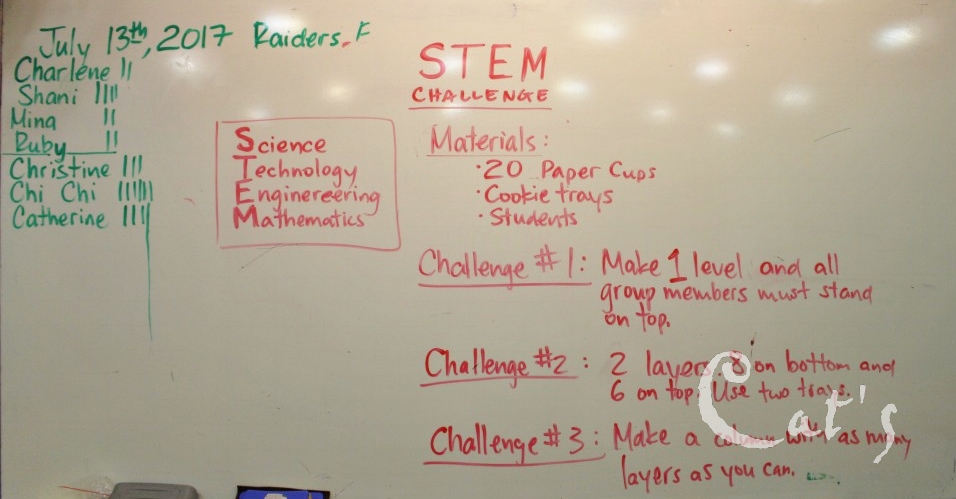 July 13th, 2017 Raiders, F
Charlene ||
Shani ||||
Mina ||
Ruby ||
Christine |||
Chi Chi ||||||
Catherine ||||
Science
Technology
Enginereering
Mathematics
STEM
CHALLENGE
Materials:
·20 Paper Cups
·Cookie trays
·Students
Challenge #1: Make 1 level and all
group members must stand
on top.
Challenge #2: 2 layers. 8 on bottom and
6 on top. Use two trays.
Challenge #3: Make a column with as many
layers as you can.
Cat's